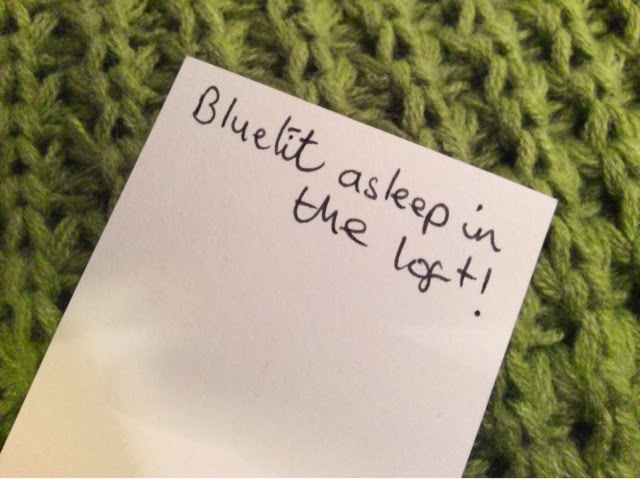 Bluetit asleep in
the loft!